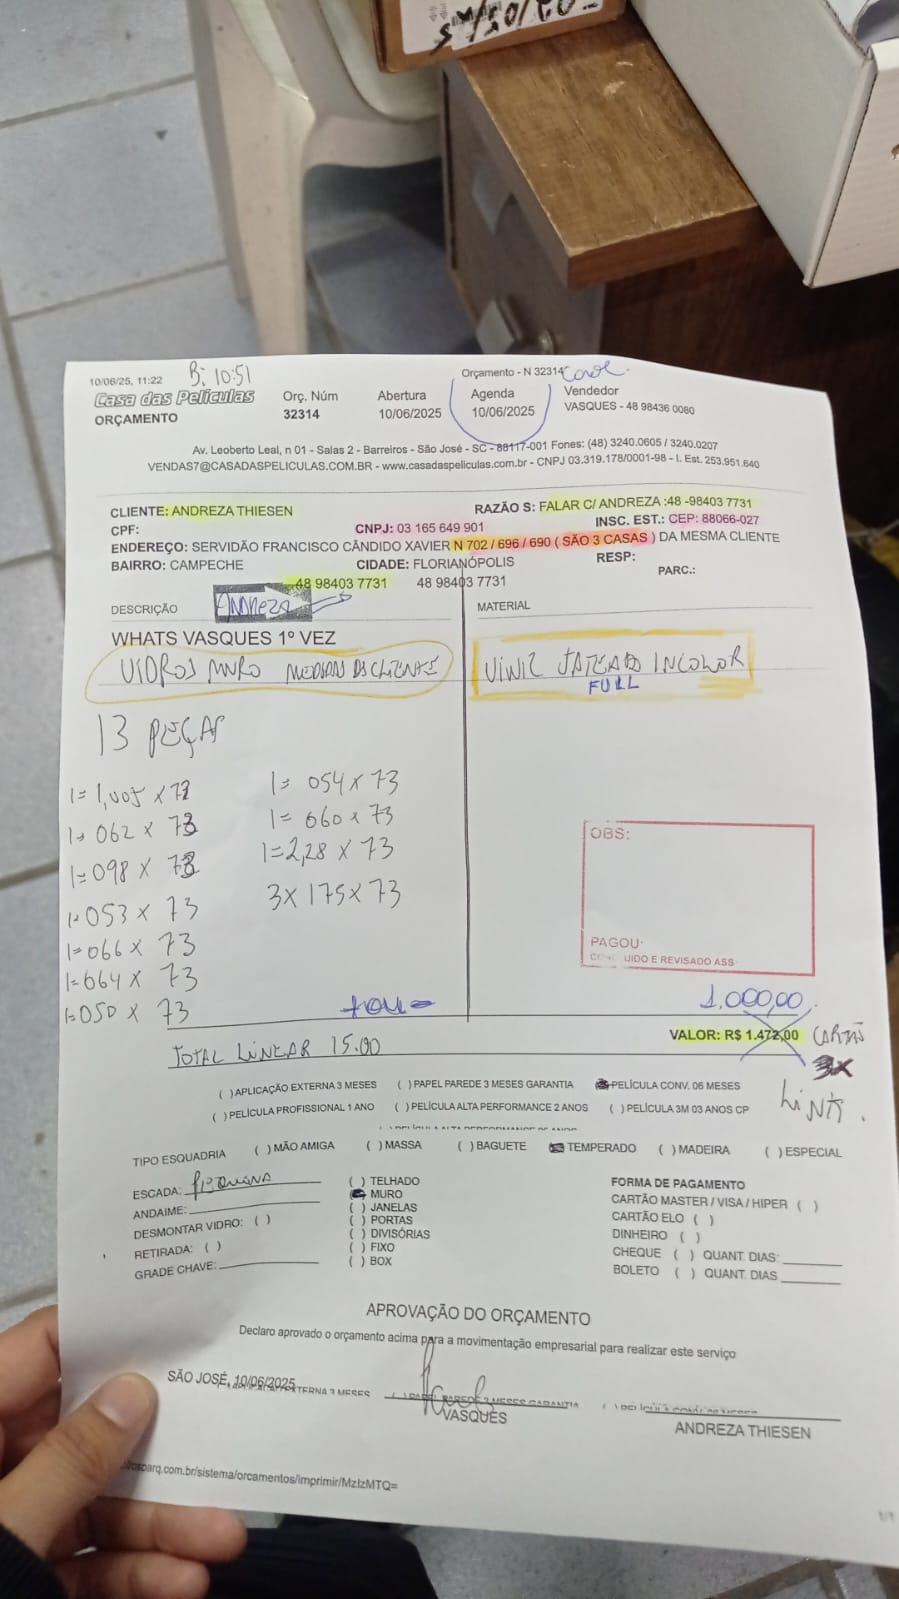 10/06/25, 11:22
B: 10:51
Orçamento - N 32314
Casa das Películas
ORÇAMENTO
Orç. Núm
32314
Abertura
10/06/2025
Agenda
10/06/2025
Vendedor
VASQUES - 48 98436 0080
Av. Leoberto Leal, n 01 - Salas 2 - Barreiros - São José - SC - 88117-001 Fones: (48) 3240.0605 / 3240.0207
VENDAS7@CASADASPELICULAS.COM.BR - www.casadaspeliculas.com.br - CNPJ 03.319.178/0001-98 - I. Est. 253.951.640
CLIENTE: ANDREZA THIESEN
RAZÃO S: FALAR C/ ANDREZA :48 -98403 7731
CPF:
CNPJ: 03 165 649 901
INSC. EST.: CEP: 88066-027
ENDEREÇO: SERVIDÃO FRANCISCO CÂNDIDO XAVIER N 702 / 696 / 690 ( SÃO 3 CASAS ) DA MESMA CLIENTE
BAIRRO: CAMPECHE
CIDADE: FLORIANÓPOLIS
RESP:
48 98403 7731
48 98403 7731
PARC.:
DESCRIÇÃO
ANDREZA
MATERIAL
WHATS VASQUES 1º VEZ
VIDROS MURO MEDIDAS DS CLIENTES
VINIL JATEADO INCOLOR
FULL
13 PEÇAS
1= 1,005 x 73
1= 062 x 73
1= 098 x 73
1= 053 x 73
1= 066 x 73
1= 064 x 73
1= 050 x 73
1= 054 x 73
1= 060 x 73
1= 2,28 x 73
3x 175 x 73
OBS:
PAGOU:
UIDO E REVISADO ASS
1.000,00
VALOR: R$ 1.472,00
CARTÃO
3x
LiNK.
TOTAL LINEAR 15.00
( ) APLICAÇÃO EXTERNA 3 MESES ( ) PAPEL PAREDE 3 MESES GARANTIA PELÍCULA CONV. 06 MESES
( ) PELÍCULA PROFISSIONAL 1 ANO ( ) PELÍCULA ALTA PERFORMANCE 2 ANOS ( ) PELÍCULA 3M 03 ANOS CP
TIPO ESQUADRIA ( ) MÃO AMIGA ( ) MASSA ( ) BAGUETE TEMPERADO ( ) MADEIRA ( ) ESPECIAL
ESCADA: PEQUENA
ANDAIME:
DESMONTAR VIDRO: ( )
RETIRADA: ( )
GRADE CHAVE:
( ) TELHADO
MURO
( ) JANELAS
( ) PORTAS
( ) DIVISÓRIAS
( ) FIXO
( ) BOX
FORMA DE PAGAMENTO
CARTÃO MASTER / VISA / HIPER ( )
CARTÃO ELO ( )
DINHEIRO ( )
CHEQUE ( ) QUANT. DIAS:
BOLETO ( ) QUANT. DIAS
APROVAÇÃO DO ORÇAMENTO
Declaro aprovado o orçamento acima para a movimentação empresarial para realizar este serviço
SÃO JOSÉ, 10/06/2025
VASQUES
ANDREZA THIESEN
arq.com.br/sistema/orcamentos/imprimir/MzIzMTQ=
1/1